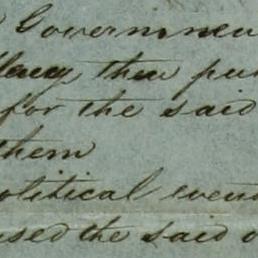 Governmen
then pu
for the said
them
olitical even
used the said o